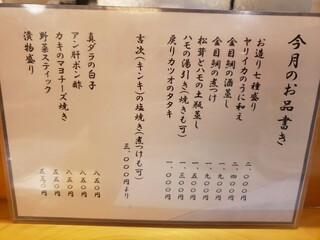 今月のお品書き
お造り七種盛り 二、〇〇〇円
ヤリイカのうに和え 一、〇〇〇円
金目鯛の酒蒸し 二、四〇〇円
金目鯛の煮つけ
松茸とハモの土瓶蒸し 一、九〇〇円
ハモの湯引き(焼きも可) 一、五〇〇円
戻りカツオのタタキ 一、〇〇〇円
吉次(キンキ)の塩焼き(煮つけも可)
三、〇〇〇円より
真ダラの白子 八五〇円
アン肝ポン酢 八五〇円
カキのマヨチーズ焼き 八五〇円
野菜スティック 五五〇円
漬物盛り 五五〇円